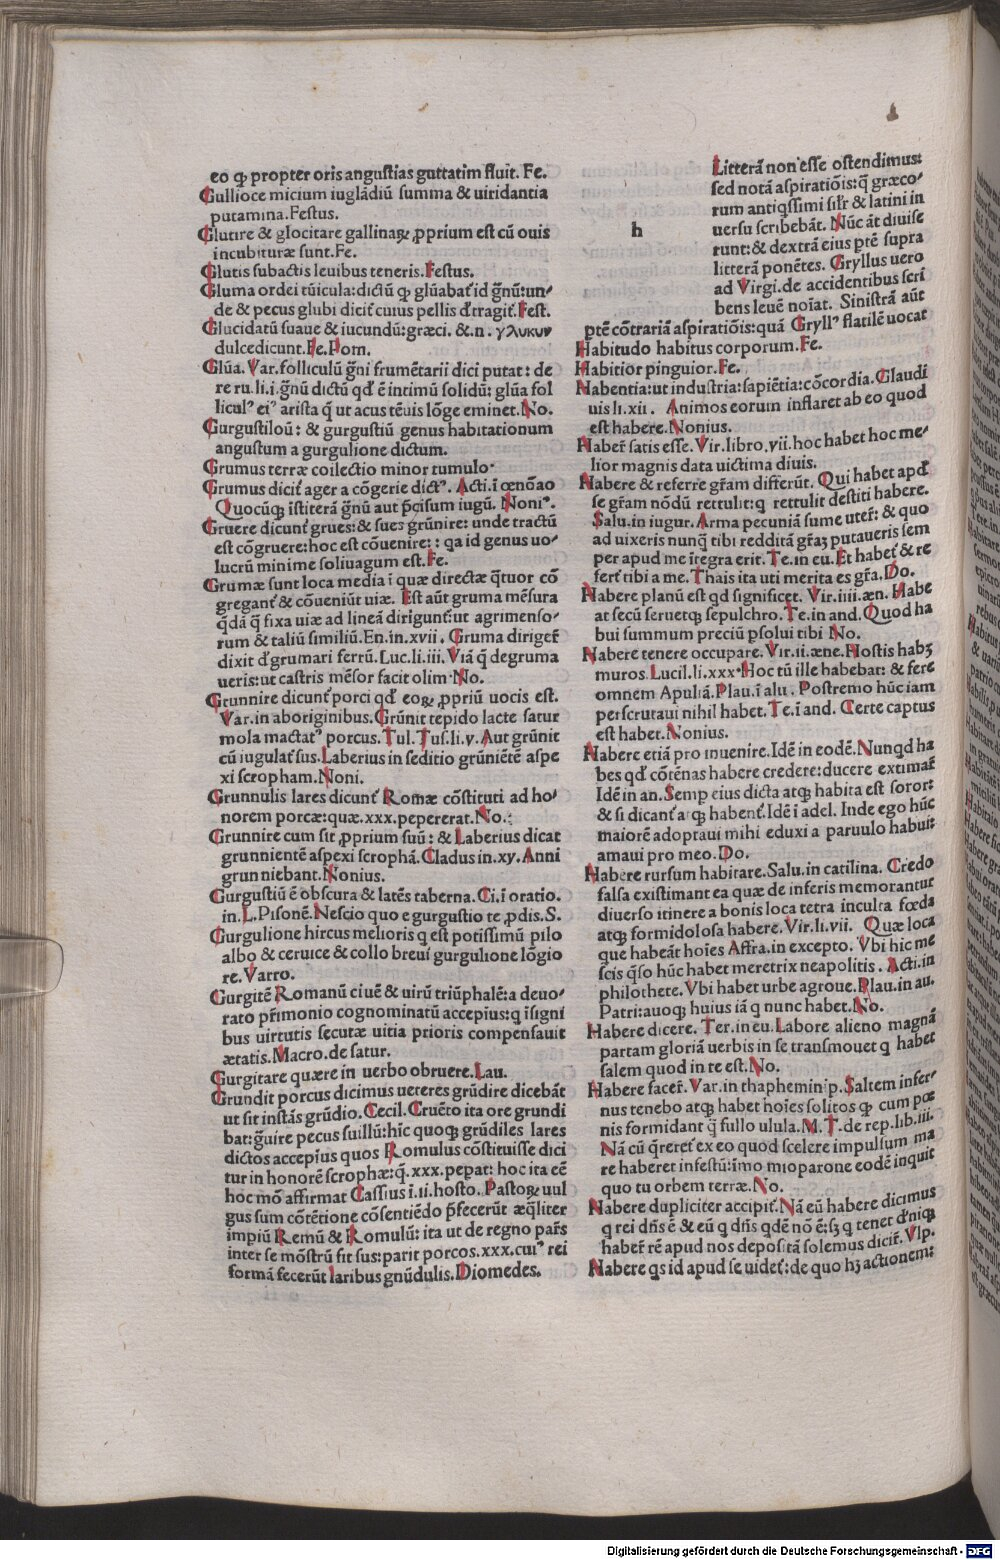 eo ꝙ propter oris angustias guttatim fluit. Fe.
Gullioce micium iuglādiū summa & uiridantia
putamina. Festus.
Glutire & glocitare gallinaꝝ ꝓprium est cū ouis
incubituræ sunt. Fe.
Glutis subactis leuibus teneris. Festus.
Gluma ordei tūicula: dictū ꝙ glūabat᷑ id g̃nū: un⸗
de & pecus glubi dicit᷑ cuius pellis d̃tragit᷑. Fest.
Glucidatū suaue & iucundū: græci. & .n. γλυκυν
dulce dicunt. Fe. Pom.
Glūa. Var. folliculū g̃ni frumētarii dici putat: de
re ru. li. i. g̃nū dictū qd᷑ ē incimū solidū: glūa fol
liculꝰ eiꝰ arista q̃ ut acus tēuis lōge eminet. No.
Gurgustiloū: & gurgustiū genus habitationum
angustum a gurgulione dictum.
Grumus terræ collectio minor tumulo.
Grumus dicit᷑ ager a cōgerie dictꝰ. Acti. ī œnōao
Quocūqꝫ īstiterā g̃nū aut p̃cisum iugū. Noniꝰ.
Gruere dicunt᷑ grues: & sues grūnire: unde tractū
est cōgruere: hoc est cōuenire: : qa id genus uo⸗
lucrū minime soliuagum est. Fe.
Grumæ sunt loca media ī quæ directæ q̃tuor cō
gregant᷑ & cōueniūt uiæ. Est aūt gruma mēsura
q̃dā q̃ fixa uiæ ad lineā dirigunt᷑: ut agrimenso⸗
rum & taliū similiū. En. in. xvii. Gruma diriger᷑
dixit d̃grumari ferrū. Luc. li. iii. Viā q̃ degruma
ueris: ut castris mēsor facit olim. No.
Grunnire dicunt᷑ porci qd᷑ eoꝝ ꝓpriū uocis est.
Var. in aboriginibus. Grūnit tepido lacte satur
mola mactatꝰ porcus. Tul. Tus. li. v. Aut grūnit
cū iugulat᷑ sus. Laberius in seditio grūniētē aspe
xi scropham. Noni.
Grunnulis lares dicunt᷑ Romæ cōstituti ad ho⸗
norem porcæ: quæ. xxx. pepererat. No.
Grunnire cum sit ꝓprium suū: & Laberius dicat
grunnientē aspexi scrophā. Cladus in. xv. Anni
grunniebant. Nonius.
Gurgustiū ē obscura & latēs taberna. Ci. ī oratio.
in. L. Pisonē. Nescio quo e gurgustio te ꝓdis. S.
Gurgulione hircus melioris q est potissimū pilo
albo & ceruice & collo breui gurgulione lōgio
re. Varro.
Gurgitē Romanū ciuē & uirū triūphalē: a deuo⸗
rato pr̃imonio cognominatū accepius: q īsigni
bus uirtutis secutæ uitia prioris compensauit
ætatis. Macro. de satur.
Gurgitare quære in uerbo obruere. Lau.
Grundit porcus dicimus ueteres grūdire dicebāt
ut sit instās grūdio. Cecil. Cruēto ita ore grundi
bat: g̃uire pecus suillū: hīc quoqꝫ grūdiles lares
dictos accepīus quos Romulus cōstituisse dici
tur in honorē scrophæ: q̃. xxx. pepat: hoc ita eē
hoc mō affirmat Cassius ī. ii. hosto. Pastoꝝ uul
gus sum cōtētione cōsentiēdo p̃fecerūt æq̃liter
impiū Remū & Romulū: ita ut de regno par̄s
inter se mōstrū fit sus: parit porcos. xxx. cuiꝰ rei
formā fecerūt laribus gnūdulis. Diomedes.
h
Litterā non esse ostendimus:
sed notā aspiratiōis: q̃ græco⸗
rum antiqssimi sil̃r & latini in
uersu scribebāt. Nūc āt diuise
runt: & dextrā eius ptē supra
litterā ponētes. Gryllus uero
ad Virgi. de accidentibus scri
bens leuē noīat. Sinistrā aūt
ptē cōtrariā aspiratiōis: quā Gryllꝰ flatilē uocat
Habitudo habitus corporum. Fe.
Habitior pinguior. Fe.
Habentia: ut industria: sapiētia: cōcordia. Claudi
uis li. xii. Animos eorum inflaret ab eo quod
est habere. Nonius.
Haber᷑ satis esse. Vir. libro. vii. hoc habet hoc me⸗
lior magnis data uictima diuis.
Habere & referre gr̃am differūt. Qui habet apd᷑
se gr̃am nōdū rettulit: q rettulit destiti habere.
Salu. in iugur. Arma pecuniā sume uter᷑: & quo
ad uixeris nunq̃ tibi redditā gr̃aꝫ putaueris sem
per apud me īregra erit. Te. in eu. Et habet᷑ & re
fert᷑ tibi a me. Thais ita uti merita es gr̃a. Do.
Habere planū est qd significet. Vir. iiii. æn. Habe
at secū seruetqꝫ sepulchro. Te. in and. Quod ha
bui summum preciū psolui tibi No.
Habere tenere occupare. Vir. ii. æne. Hostis habꝫ
muros. Lucil. li. xxx. Hoc tū ille habebat: & fere
omnem Apuliā. Plau. ī alu. Postremo hūc iam
perscrutaui nihil habet. Te. ī and. Certe captus
est habet. Nonius.
Habere etiā pro inuenire. Idē in eodē. Nunqd ha
bes qd᷑ cōtēnas habere credere: ducere extimar᷑
Idē in an. Semp eius dicta atqꝫ habita est soror:
& si dicant᷑ atqꝫ habent᷑. Idē ī adel. Inde ego hūc
maiorē adoptaui mihi eduxi a paruulo habui:
amaui pro meo. Do.
Habere rursum habitare. Salu. in catilina. Credo
falsa existimant ea quæ de inferis memorantur
diuerso itinere a bonis loca tetra inculta fœda
atqꝫ formidolosa habere. Vir. li. vii. Quæ loca
que habeāt hoīes Affra. in excepto. Vbi hic me
scis q̃so hūc habet meretrix neapolitis. Acti. in
philothete. Vbi habet urbe agroue. Plau. in au.
Patri: auoqꝫ huius iā q nunc habet. No.
Habere dicere. Ter. in eu. Labore alieno magnā
partam gloriā uerbis in se transmouet q habet
salem quod in te est. No.
Habere facer᷑. Var. in thaphemin ip. Saltem infer⸗
nus tenebo atqꝫ habet hoīes solitos ꝙ cum poæ
nis formidant q̃ fullo ulula. M. T. de rep. lib. iii.
Nā cū q̃reret᷑ ex eo quod scelere impulsum ma
re haberet infestū: īmo mioparone eodē inquit
quo tu orbem terræ. No.
Habere dupliciter accipit᷑. Nā eū habere dicimus
q rei dn̄s ē & eū q dn̄s qdē nō ē: sꝫ q tenet d̃niqꝫ
haber᷑ rē apud nos depositā solemus dicir᷑. Vlp.
Habere qs id apud se uidet᷑: de quo hꝫ actionem:
Digitalisierung gefördert durch die Deutsche Forschungsgemeinschaft - DFG